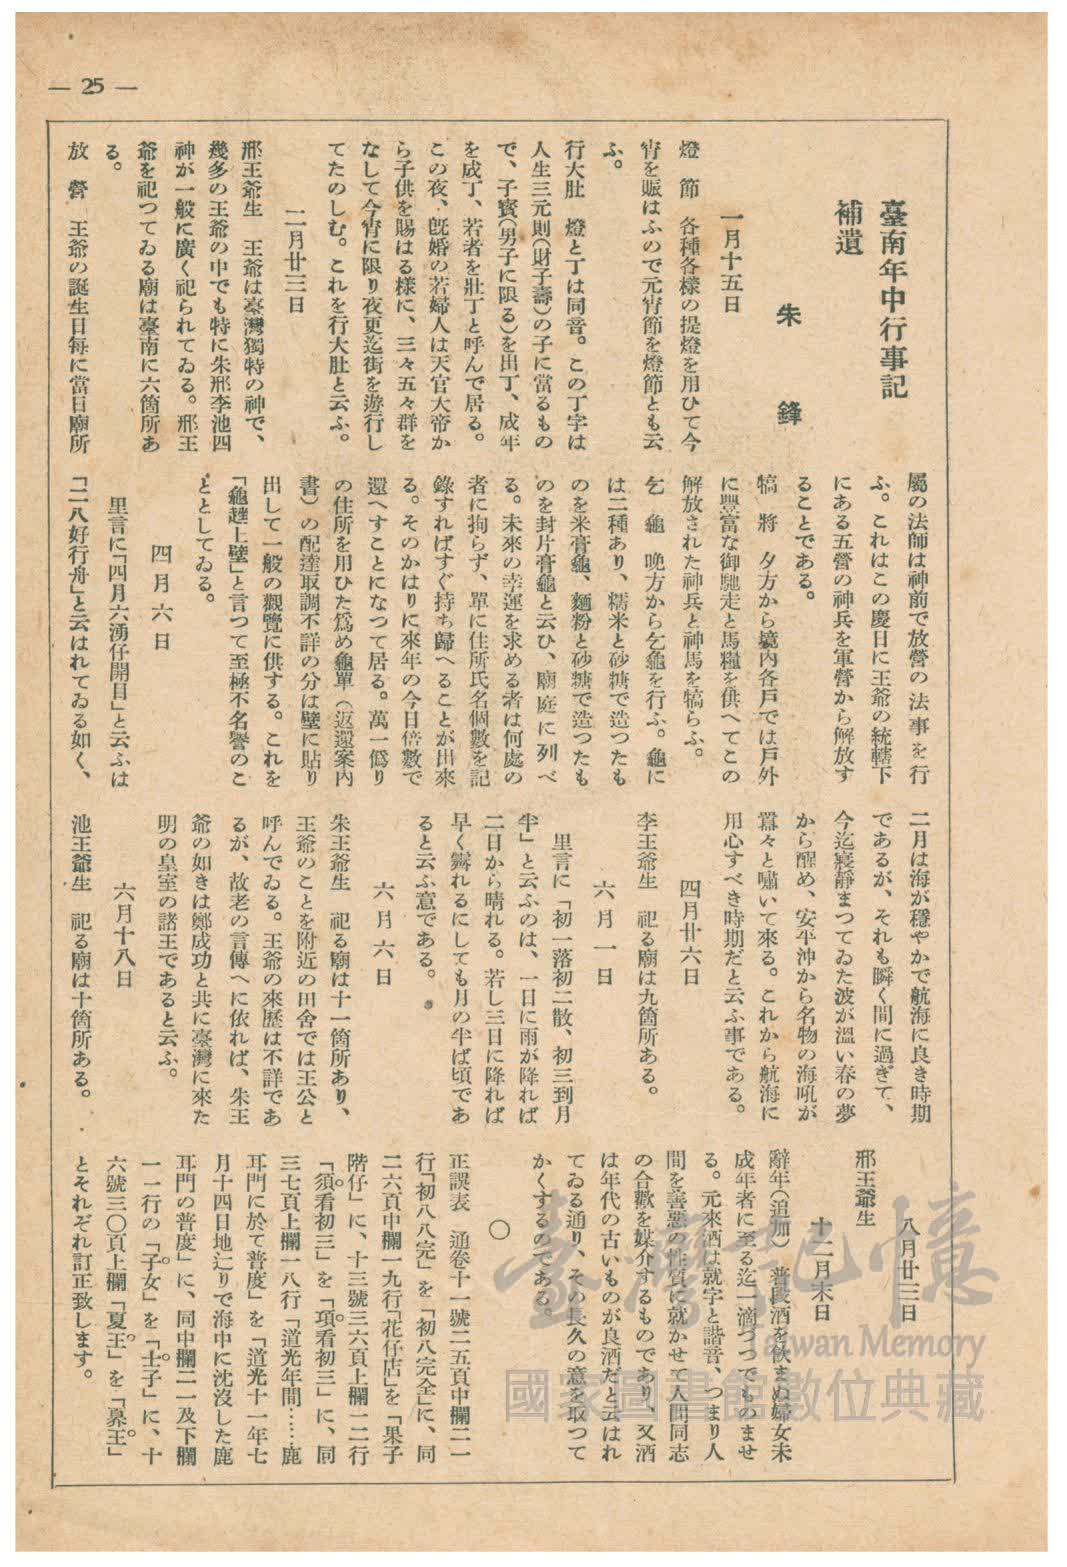 — 25 —
臺南年中行事記
補遺
朱鋒
一月十五日
燈節　各種各樣の提燈を用ひて今
宵を賑はふので元宵節を燈節とも云
ふ。
行大肚　燈と丁は同音。この丁字は
人生三元則(財子壽)の子に當るもの
で、子賓(男子に限る)を出丁、成年
を成丁、若者を壯丁と呼んで居る。
この夜、旣婚の若婦人は天官大帝か
ら子供を賜はる樣に、三々五々群を
なして今宵に限り夜更迄街を遊行し
てたのしむ。これを行大肚と云ふ。
二月廿三日
邢王爺生　王爺は臺灣獨特の神で、
幾多の王爺の中でも特に朱邢李池四
神が一般に廣く祀られてゐる。邢王
爺を祀つてゐる廟は臺南に六箇所あ
る。
放營　王爺の誕生日每に當日廟所
屬の法師は神前で放營の法事を行
ふ。これはこの慶日に王爺の統轄下
にある五營の神兵を軍營から解放す
ることである。
犒將　夕方から境內各戶では戶外
に豐富な御馳走と馬糧を供へてこの
解放された神兵と神馬を犒らふ。
乞龜　晩方から乞龜を行ふ。龜に
は二種あり、糯米と砂糖で造つたも
のを米膏龜、麵粉と砂糖で造つたも
のを封片膏龜と云ひ、廟庭に列べ
る。未來の幸運を求める者は何處の
者に拘らず、單に住所氏名個數を記
錄すればすぐ持ち歸へることが出來
る。そのかはりに來年の今日倍數で
還へすことになつて居る。萬一僞り
の住所を用ひた爲め龜單(返還案內
書)の配達取調不詳の分は壁に貼り
出して一般の觀覽に供する。これを
「龜𧾷上壁」と言つて至極不名譽のこ
ととしてゐる。
四月六日
里言に「四月六湧仔開目」と云ふは
「二八好行舟」と云はれてゐる如く、
二月は海が穩やかで航海に良き時期
であるが、それも瞬く間に過ぎて、
今迄寢靜まつてゐた波が溫い春の夢
から醒め、安平沖から名物の海吼が
囂々と嘯いて來る。これから航海に
用心すべき時期だと云ふ事である。
四月廿六日
李王爺生　祀る廟は九箇所ある。
六月一日
里言に「初一落初二散、初三到月
半」と云ふのは、一日に雨が降れば
二日から晴れる。若し三日に降れば
早く霽れるにしても月の半ば頃であ
ると云ふ意である。
六月六日
朱王爺生　祀る廟は十一箇所あり、
王爺のことを附近の田舍では王公と
呼んでゐる。王爺の來歷は不詳であ
るが、故老の言傳へに依れば、朱王
爺の如きは鄭成功と共に臺灣に來た
明の皇室の諸王であると云ふ。
六月十八日
池王爺生　祀る廟は十箇所ある。
八月廿三日
邢王爺生
十二月末日
辭年(追加)　普段酒を飮まぬ婦女未
成年者に至る迄一滴づつでものませ
る。元來酒は就字と諧音、つまり人
間を善惡の性質に就かせて人間同志
の合歡を媒介するものであり、又酒
は年代の古いものが良酒だと云はれ
てゐる通り、その長久の意を取つて
かくするのである。
〇
正誤表　通卷十一號二五頁中欄二一
行「初八八完」を「初八完全」に、同
二六頁中欄一九行「花仔店」を「果子
階仔」に、十三號三六頁上欄一二行
「須看初三」を「項看初三」に、同
三七頁上欄一八行「道光年間……鹿
耳門に於て普度」を「道光十一年七
月十四日地辷りで海中に沈沒した鹿
耳門の普度」に、同中欄二一及下欄
一一行の「子女」を「士子」に、十
六號三〇頁上欄「夏王」を「奡王」
とそれぞれ訂正致します。
臺灣記憶
Taiwan Memory
國家圖書館數位典藏